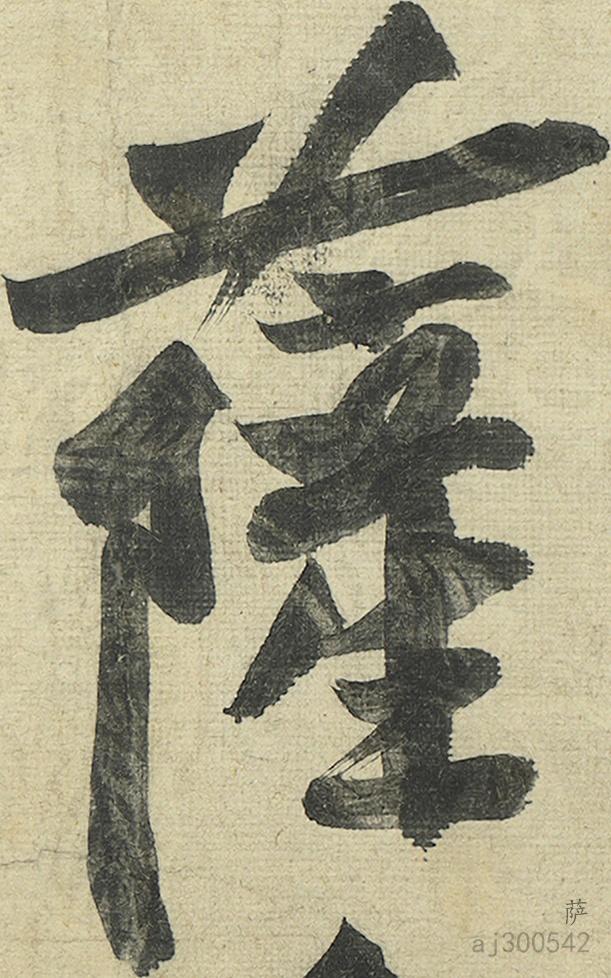 薩
萨
aj300542